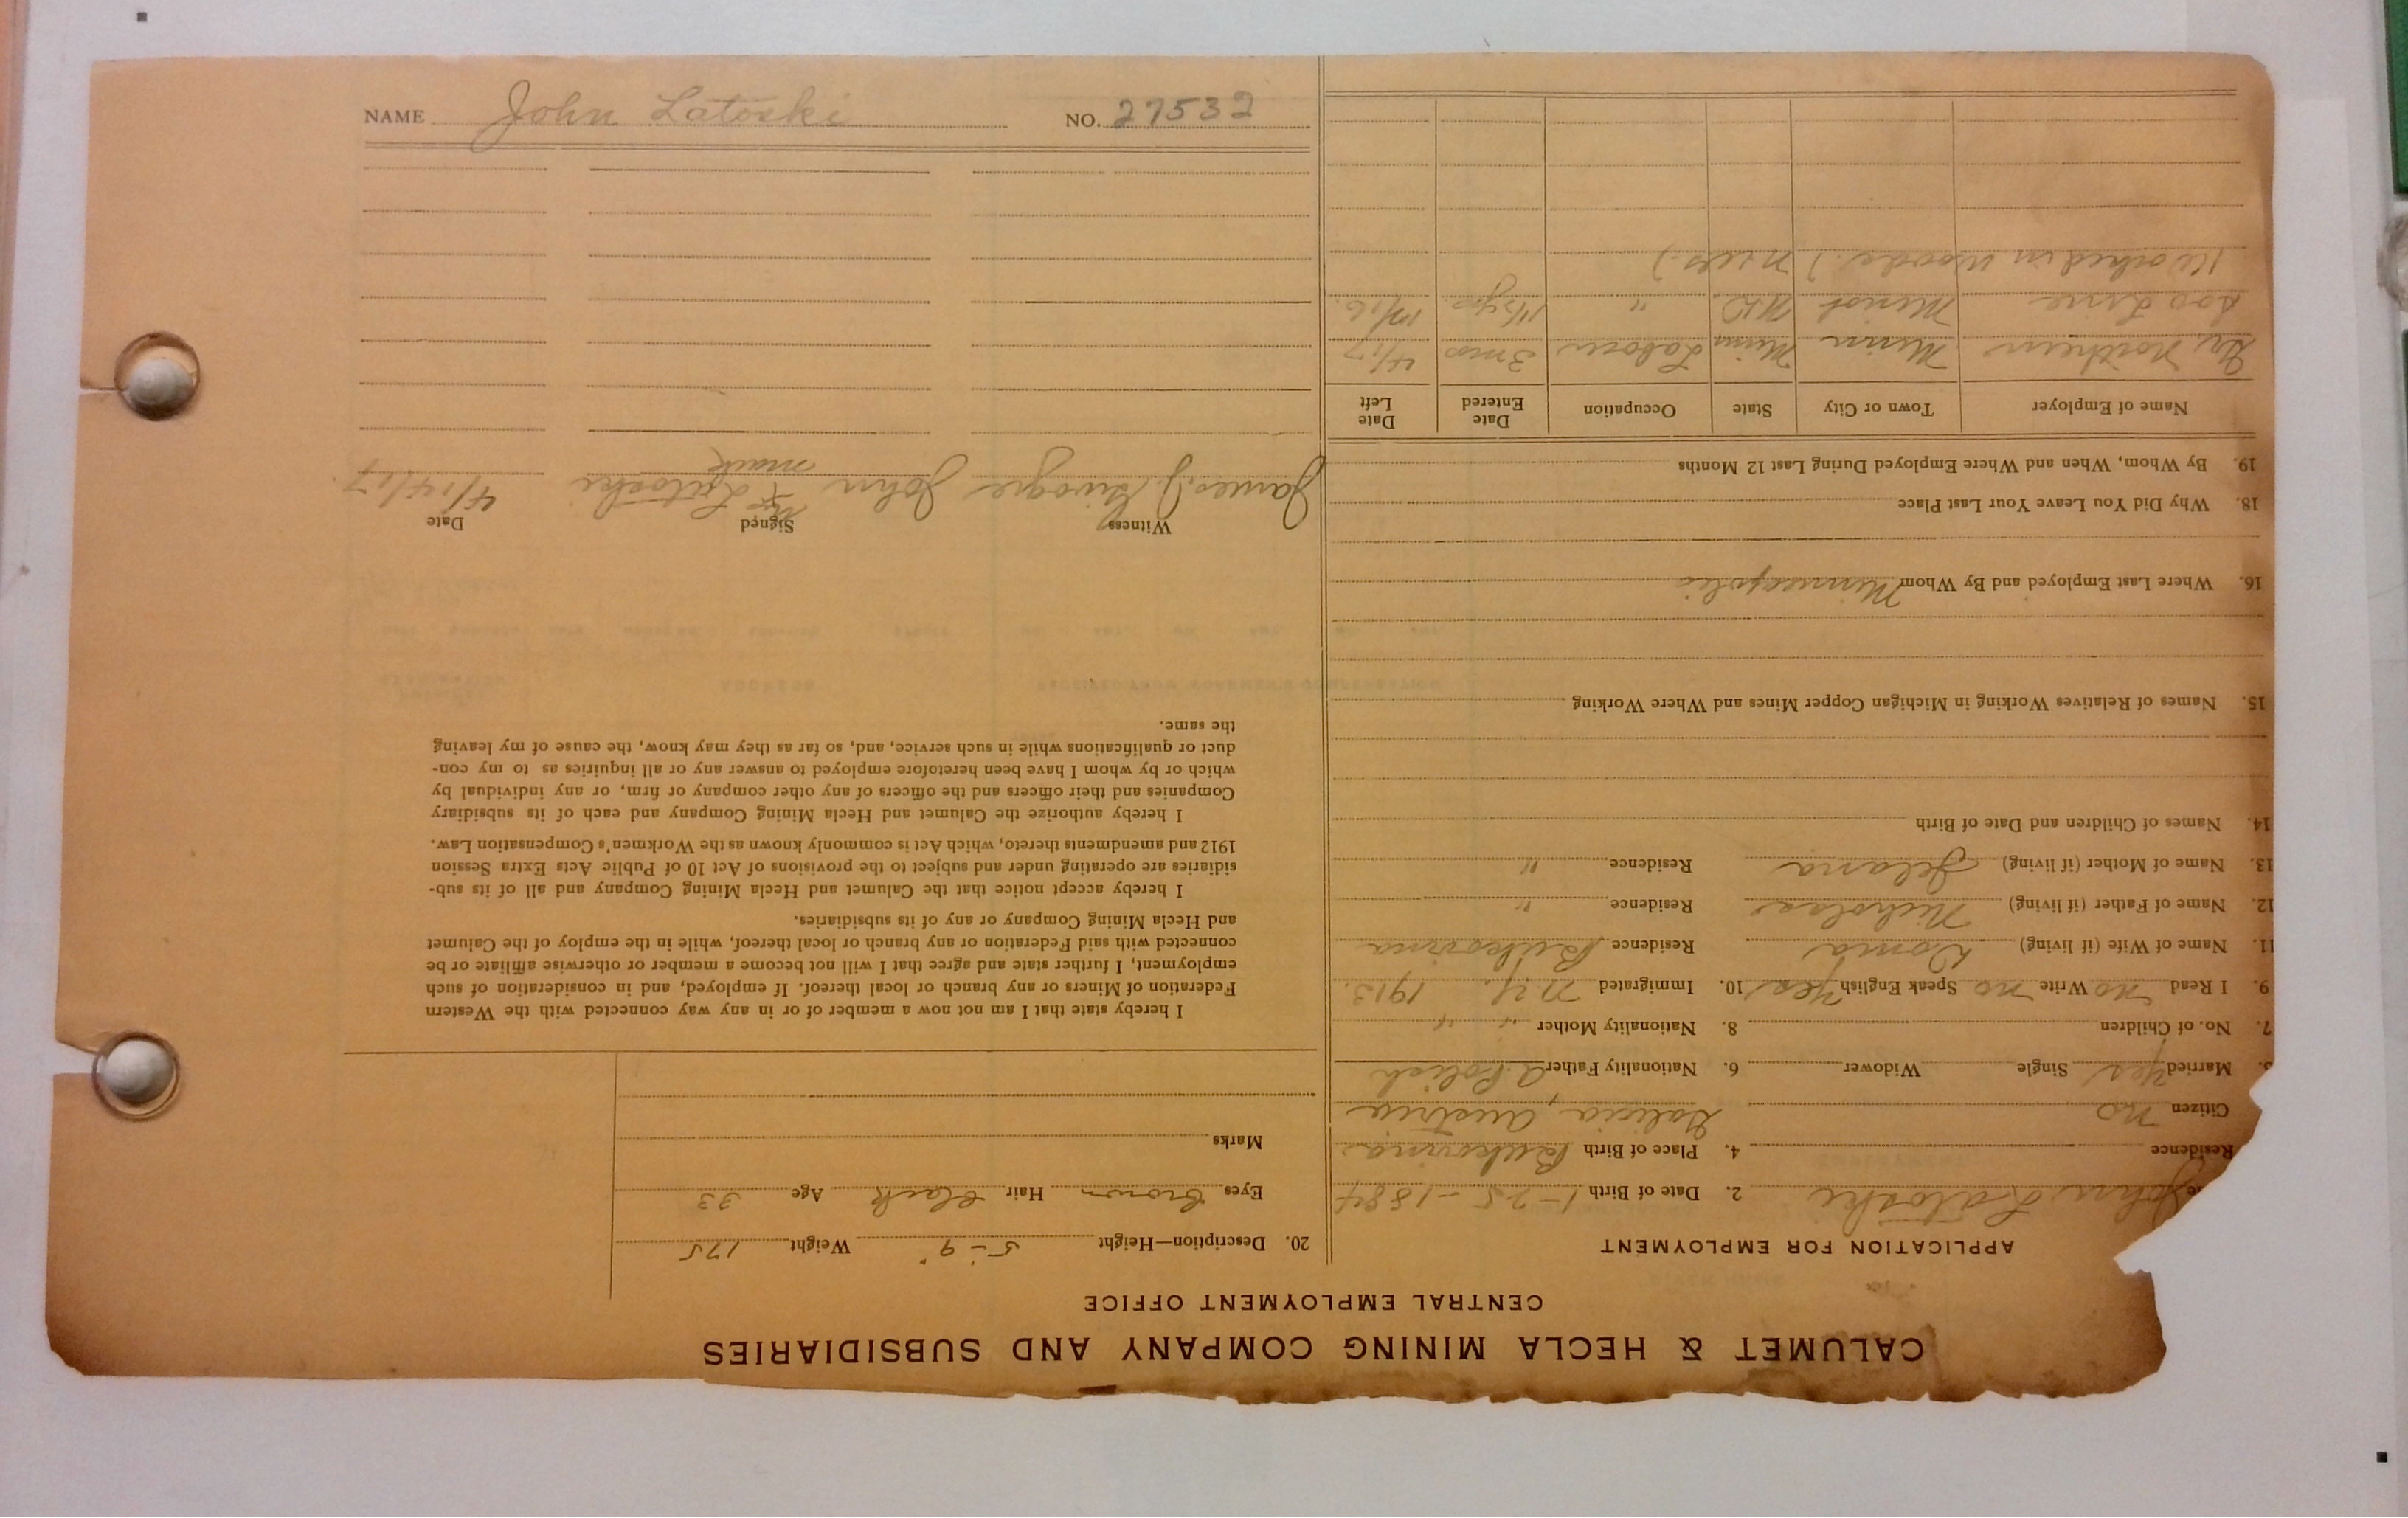 NAME John Latoski NO. 27532
CALUMET & HECLA MINING COMPANY AND SUBSIDIARIES
CENTRAL EMPLOYMENT OFFICE
APPLICATION FOR EMPLOYMENT
John Latoski 2. Date of Birth 1-25-1884
Residence 4. Place of Birth Bukovina
Citizen no Galicia, Austria
Married Yes Single Widower 6. Nationality Father A. Polish
7. No. of Children 8. Nationality Mother " "
9. I Read no Write no Speak English Yes 10. Immigrated N.Y. 1913.
11. Name of Wife (if living) Residence Bukovina
12. Name of Father (if living) Nicholas Residence "
13. Name of Mother (if living) Residence "
14. Names of Children and Date of Birth
15. Names of Relatives Working in Michigan Copper Mines and Where Working
16. Where Last Employed and By Whom Minneapolis
18. Why Did You Leave Your Last Place
19. By Whom, When and Where Employed During Last 12 Months
Name of Employer Town or City State Occupation Date Entered Date Left
Gr. Northern Minn Minn Labor 3 mos 4/17
Soo Line Minot N.D. " 1½ yrs
(Worked in woods.)
20. Description—Height 5'-9" Weight 175
Eyes brown Hair black Age 33
Marks
I hereby state that I am not now a member of or in any way connected with the Western
Federation of Miners or any branch or local thereof. If employed, and in consideration of such
employment, I further state and agree that I will not become a member or otherwise affiliate or be
connected with said Federation or any branch or local thereof, while in the employ of the Calumet
and Hecla Mining Company or any of its subsidiaries.
I hereby accept notice that the Calumet and Hecla Mining Company and all of its sub-
sidiaries are operating under and subject to the provisions of Act 10 of Public Acts Extra Session
1912 and amendments thereto, which Act is commonly known as the Workmen's Compensation Law.
I hereby authorize the Calumet and Hecla Mining Company and each of its subsidiary
Companies and their officers and the officers of any other company or firm, or any individual by
which or by whom I have been heretofore employed to answer any or all inquiries as to my con-
duct or qualifications while in such service, and, so far as they may know, the cause of my leaving
the same.
Witness Signed Date
James J. John his x Latoski 4/14/17
mark